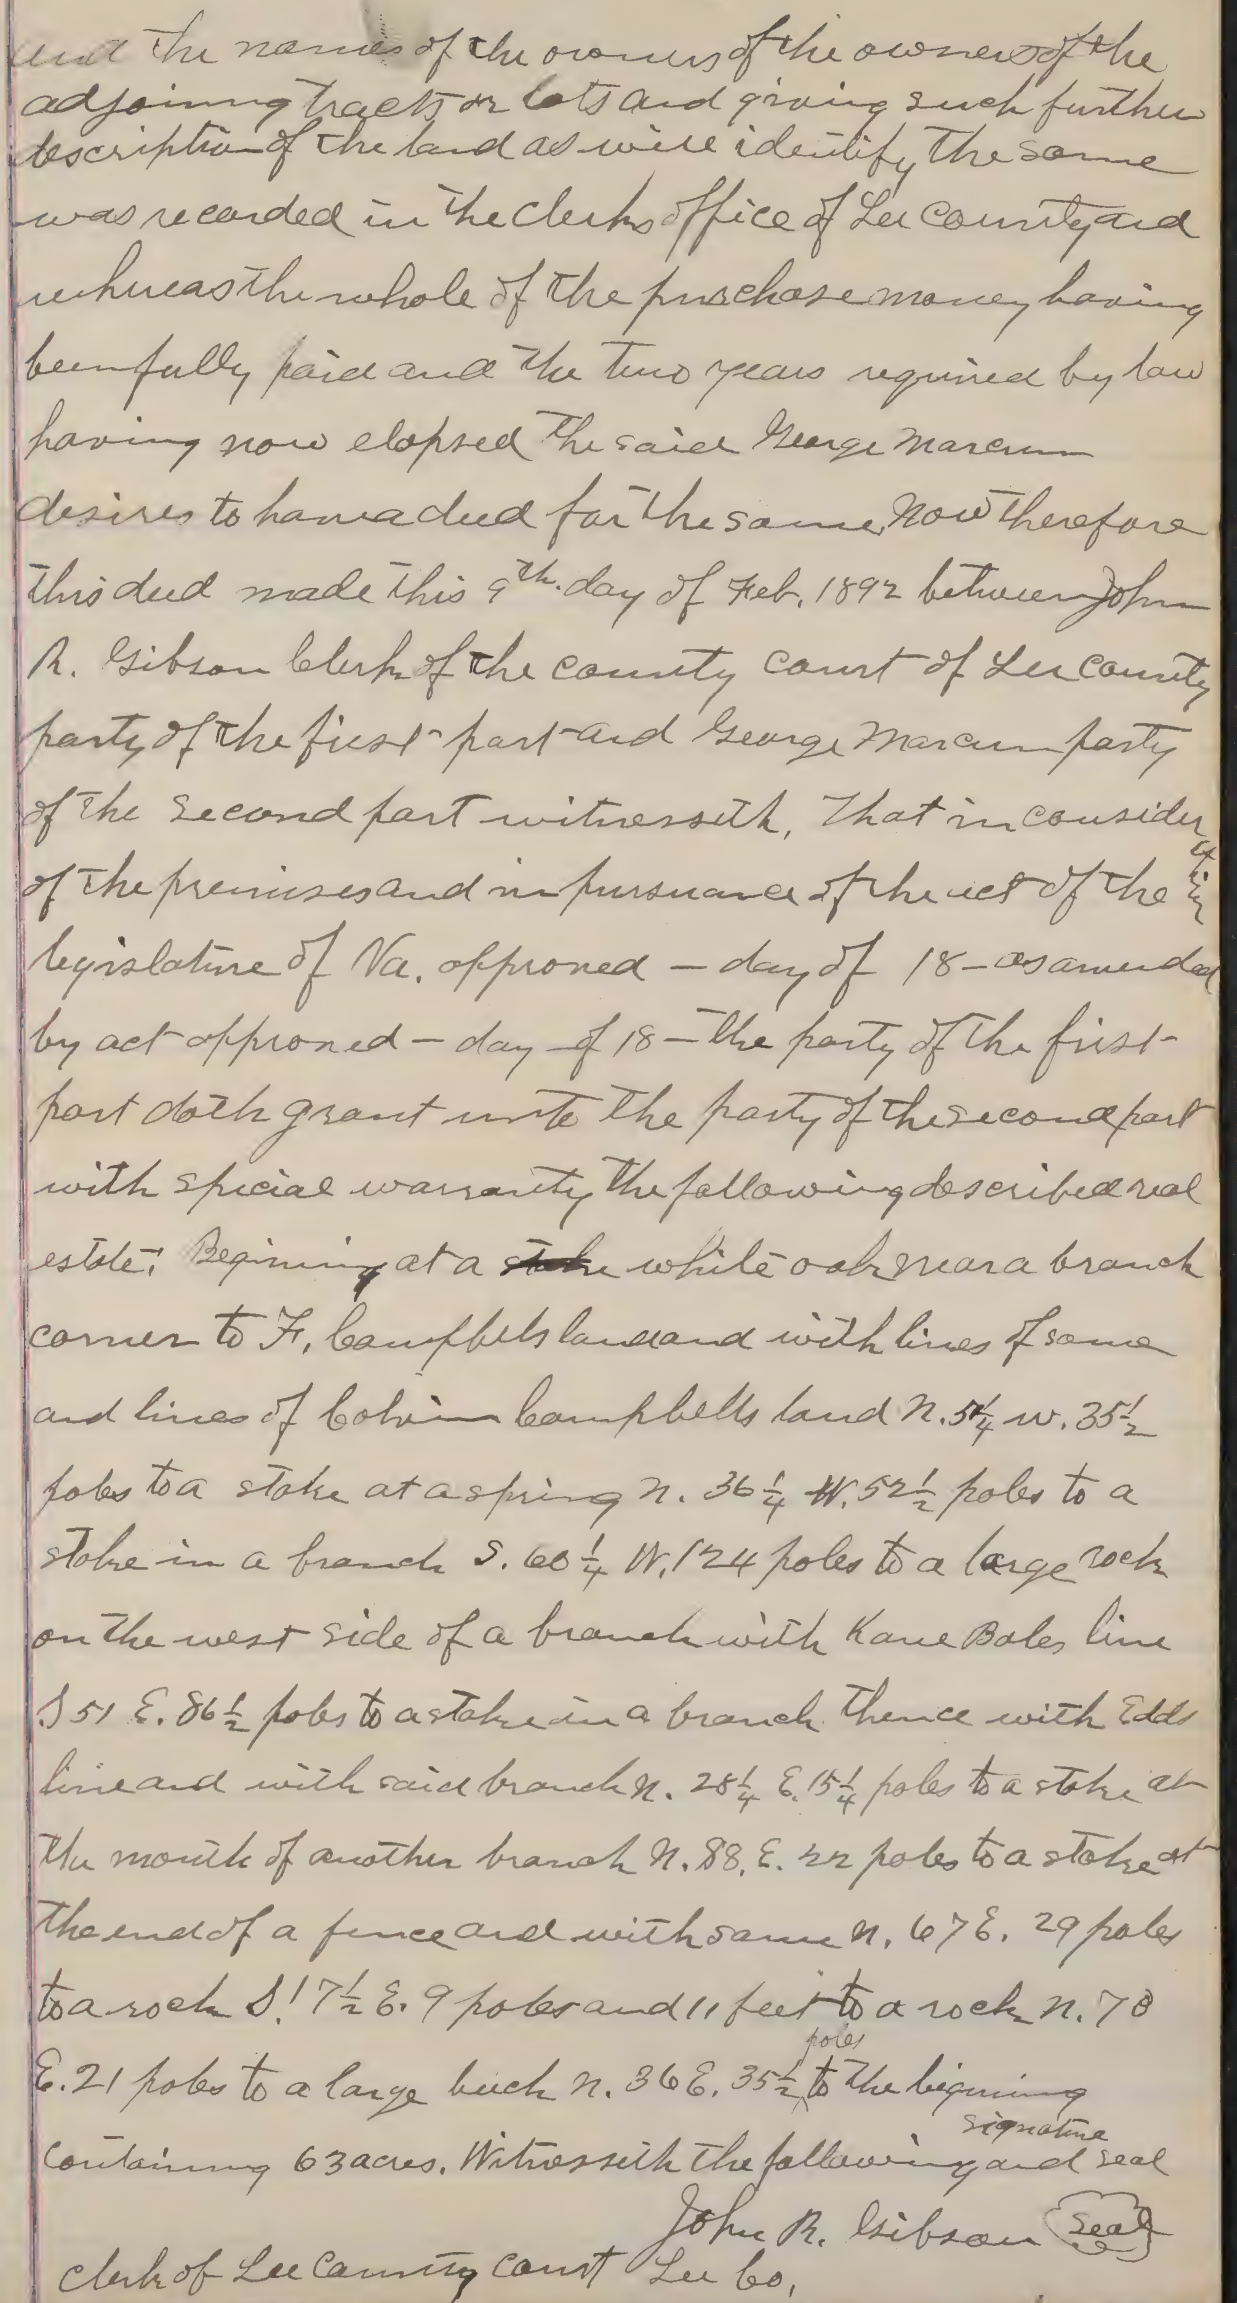 and the names of the owners of the owners of the
adjoining tracts or lots and giving such further
description of the land as will identify the same
was recorded in the clerks office of Lee County and
whereas the whole of the purchase money having
been fully paid and the two years required by law
having now elapsed the said George Marcum
desires to have a deed for the same, Now therefore
this deed made this 9th. day of Feb. 1892 between John
R. Gibson Clerk of the county court of Lee County
party of the first part and George Marcum party
of the second part witnesseth, That in consider
ation
of the premises and in pursuance of the act of the
legislature of Va. approved — day of 18 — as amended
by act approved — day of 18 — the party of the first
part doth grant unto the party of the second part
with special warranty the following described real
estate: Begining at a stake white oak near a branch
corner to F, Campbels land and with lines of same
and lines of Colvin Campbells land N. 5 1/4 W. 35 1/2
poles to a stake at a spring N. 36 1/4 W. 52 1/2 poles to a
stake in a branch S. 60 1/4 W. 124 poles to a large rock
on the west side of a branch with Kane Bales line
S 51 E. 86 1/2 poles to a stake in a branch thence with Edds
line and with said branch N. 28 1/4 E. 15 1/4 poles to a stake at
the mouth of another branch N. 88, E. 22 poles to a stake at
the end of a fence and with same N. 67 E. 29 poles
to a rock S. 17 1/2 E. 9 poles and 11 feet to a rock N. 78
poles
E. 21 poles to a large buck N. 36 E. 35 1/2 to the begining
signature
containing 63 acres. Witnesseth the following and seal
John R. Gibson Seal
Clerk of Lee County Court Lee Co,